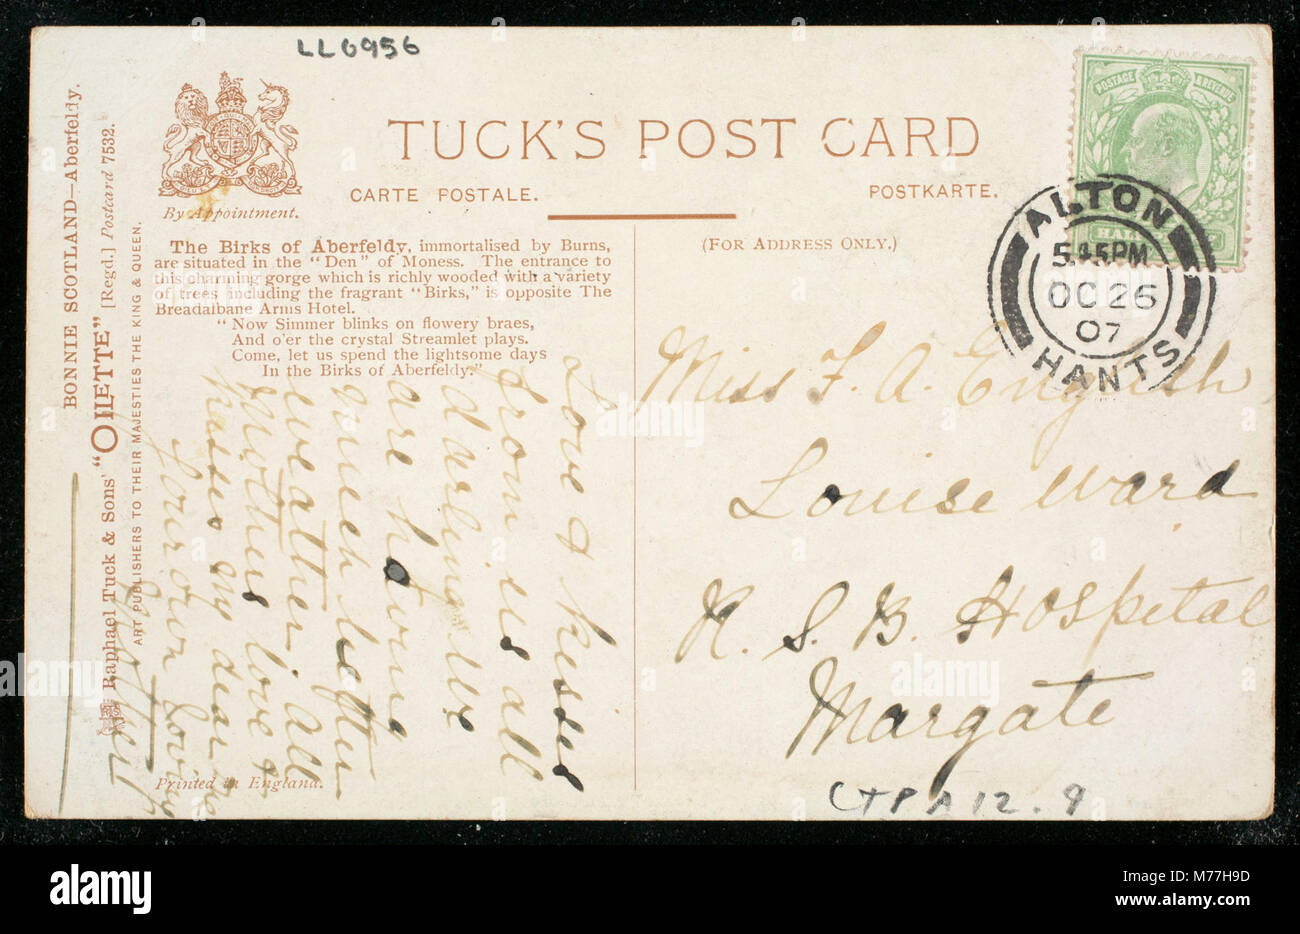 LL6956
TUCK'S POST CARD
CARTE POSTALE.
POSTKARTE.
By Appointment.
(FOR ADDRESS ONLY.)
The Birks of Aberfeldy, immortalised by Burns,
are situated in the "Den" of Moness. The entrance to
this charming gorge which is richly wooded with a variety
of trees including the fragrant "Birks," is opposite The
Breadalbane Arms Hotel.
"Now Simmer blinks on flowery braes,
And o'er the crystal Streamlet plays.
Come, let us spend the lightsome days
In the Birks of Aberfeldy."
BONNIE SCOTLAND—Aberfeldy.
Raphael Tuck & Sons' "OILETTE" [Regd.] Postcard 7532.
ART PUBLISHERS TO THEIR MAJESTIES THE KING & QUEEN.
Printed in England.
POSTAGE & REVENUE
HAL
ALTON
5.45PM
OC 26
07
HANTS
Miss F. A. English
Louise Ward
R. S. B. Hospital
Margate
Love & kisses
from us all
darling. We
are having
much better
weather. All
Mothers love &
kisses my dear
Your own loving
CTPA12.9
alamy
Image ID: M77H9D
www.alamy.com